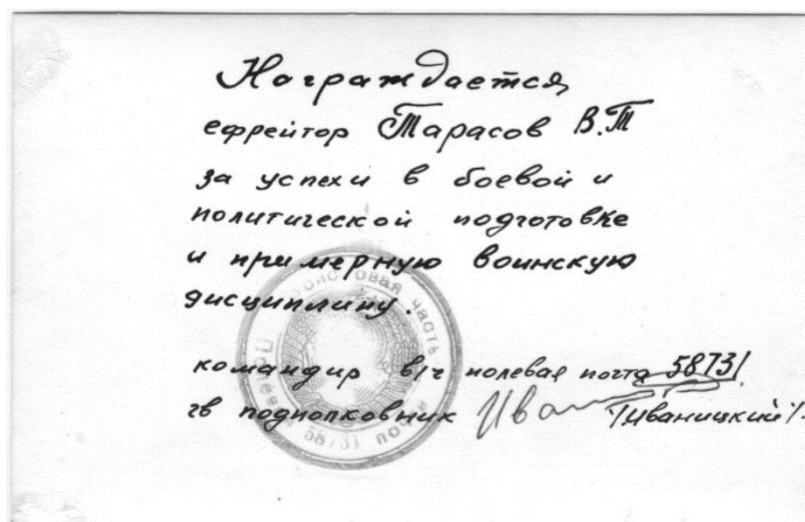 Награждается
ефрейтор Тарасов В.Т
за успехи в боевой и
политической подготовке
и примерную воинскую
дисциплину.
командир в/ч полевая почта 58731
гв подполковник Иван /Иваницкий/.
войсковая часть
Полевая почта 58731